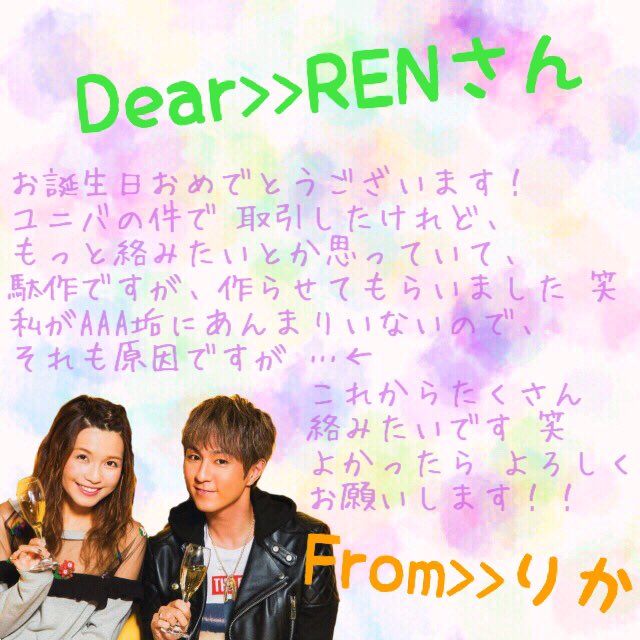 Dear>>RENさん
お誕生日おめでとうございます！
ユニバの件で 取引したけれど、
もっと絡みたいとか思っていて、
駄作ですが、作らせてもらいました 笑
私がAAA垢にあんまりいないので、
それも原因ですが …←
これからたくさん
絡みたいです 笑
よかったら よろしく
お願いします！！
From>>りか